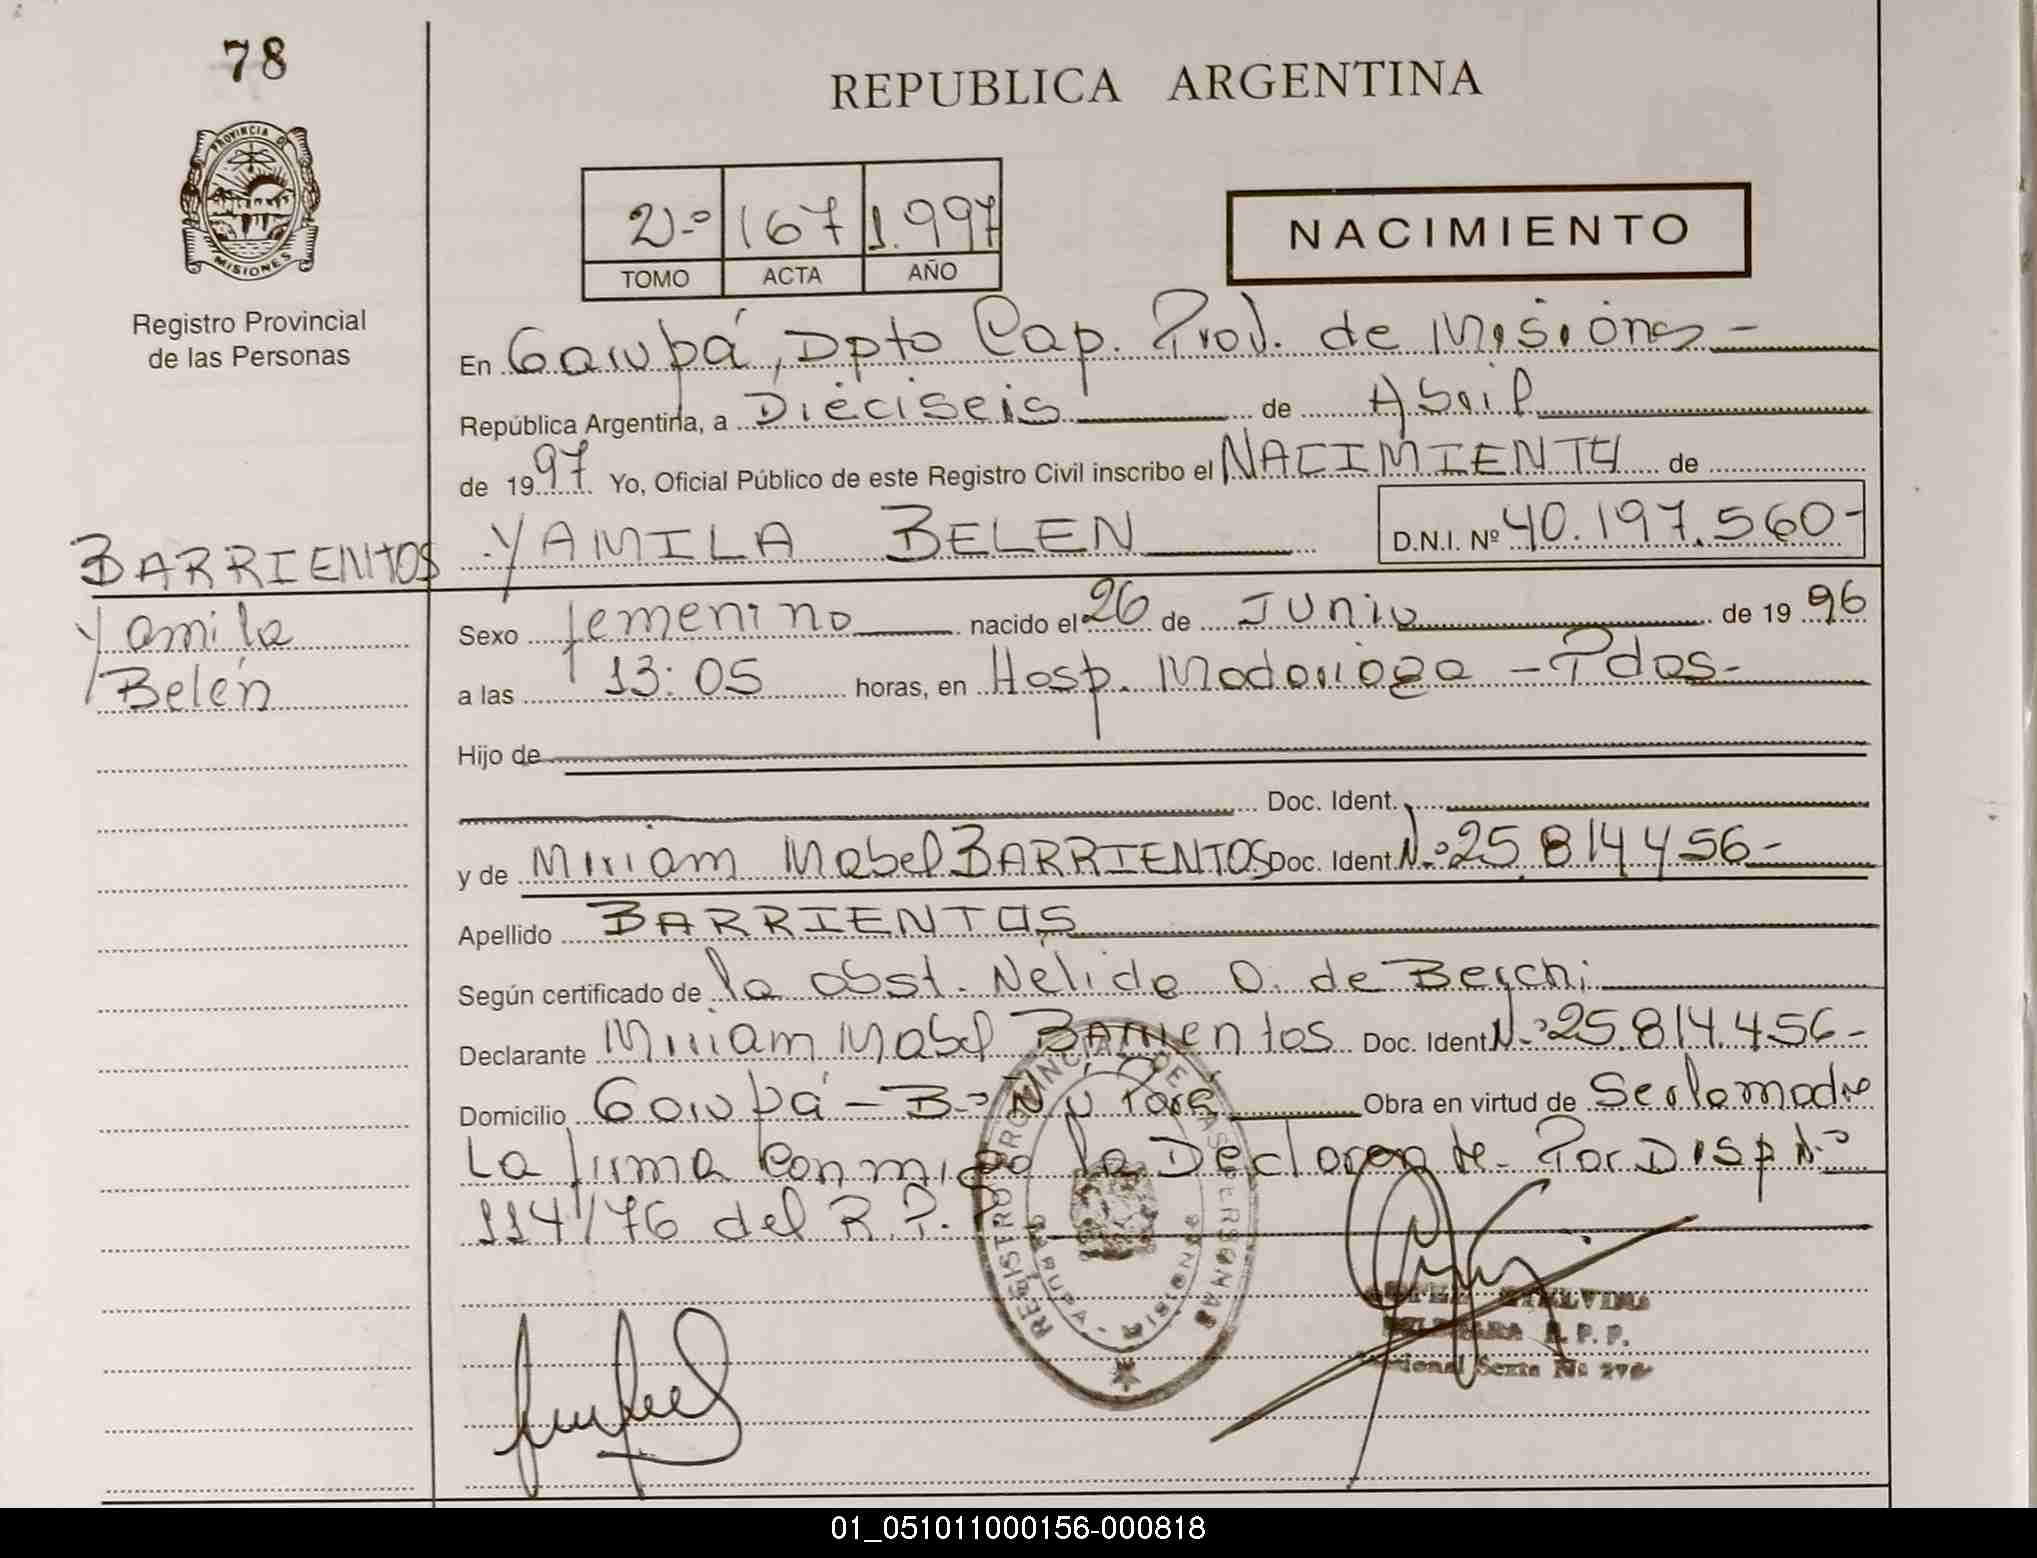 78
REPUBLICA ARGENTINA
PROVINCIA DE
MISIONES
Registro Provincial
de las Personas
2º 167 1.997
TOMO ACTA AÑO
NACIMIENTO
En Garupá, Dpto Cap. Prov. de Misiones -
República Argentina, a Dieciseis de Abril
de 1997 Yo, Oficial Público de este Registro Civil inscribo el NACIMIENTO de
YAMILA BELEN D.N.I. Nº 40.197.560-
BARRIENTOS
Yamila
Belén
Sexo femenino nacido el 26 de Junio de 19 96
a las 13:05 horas, en Hosp. Madariaga - Pdas-
Hijo de
Doc. Ident.
y de Miriam Mabel BARRIENTOS Doc. Ident. Nº 25.814456-
Apellido BARRIENTOS
Según certificado de la obst. Nelida O. de
Declarante Miriam Mabel Barrientos Doc. Ident Nº 25.814.456-
Domicilio Garupá - Bº Ñu Porá Obra en virtud de Ser la madre
La firma conmigo la Declarante. Por Disp Nº
114/76 del R.P.
REGISTRO PROVINCIAL DE LAS PERSONAS
GARUPA - MISIONES
R. P. P.
01_051011000156-000818